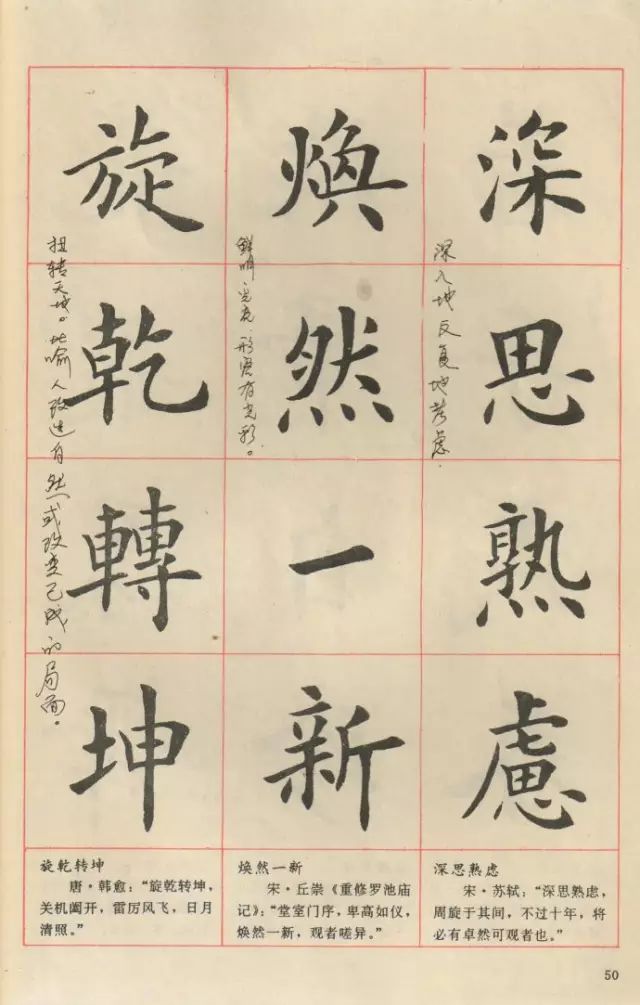 深思熟慮
深入地反复地考虑.
煥然一新
鲜明光亮.形容有光彩。
旋乾轉坤
扭转天地。比喻人改造自然或改变已成的局面。
旋乾转坤
唐·韩愈：“旋乾转坤，
关机阖开，雷厉风飞，日月
清照。”
焕然一新
宋·丘崇《重修罗池庙
记》：“堂室门序，卑高如仪，
焕然一新，观者嗟异。”
深思熟虑
宋·苏轼：“深思熟虑，
周旋于其间，不过十年，将
必有卓然可观者也。”
50